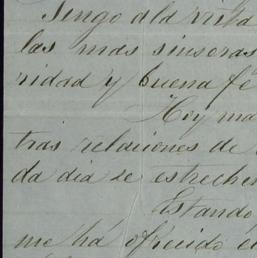 Tengo a la vista
las mas sinseras
ridad y buena fé
Hoy ma
tras relaciones de
da dia se estreche
Estando
me há ofrecido e